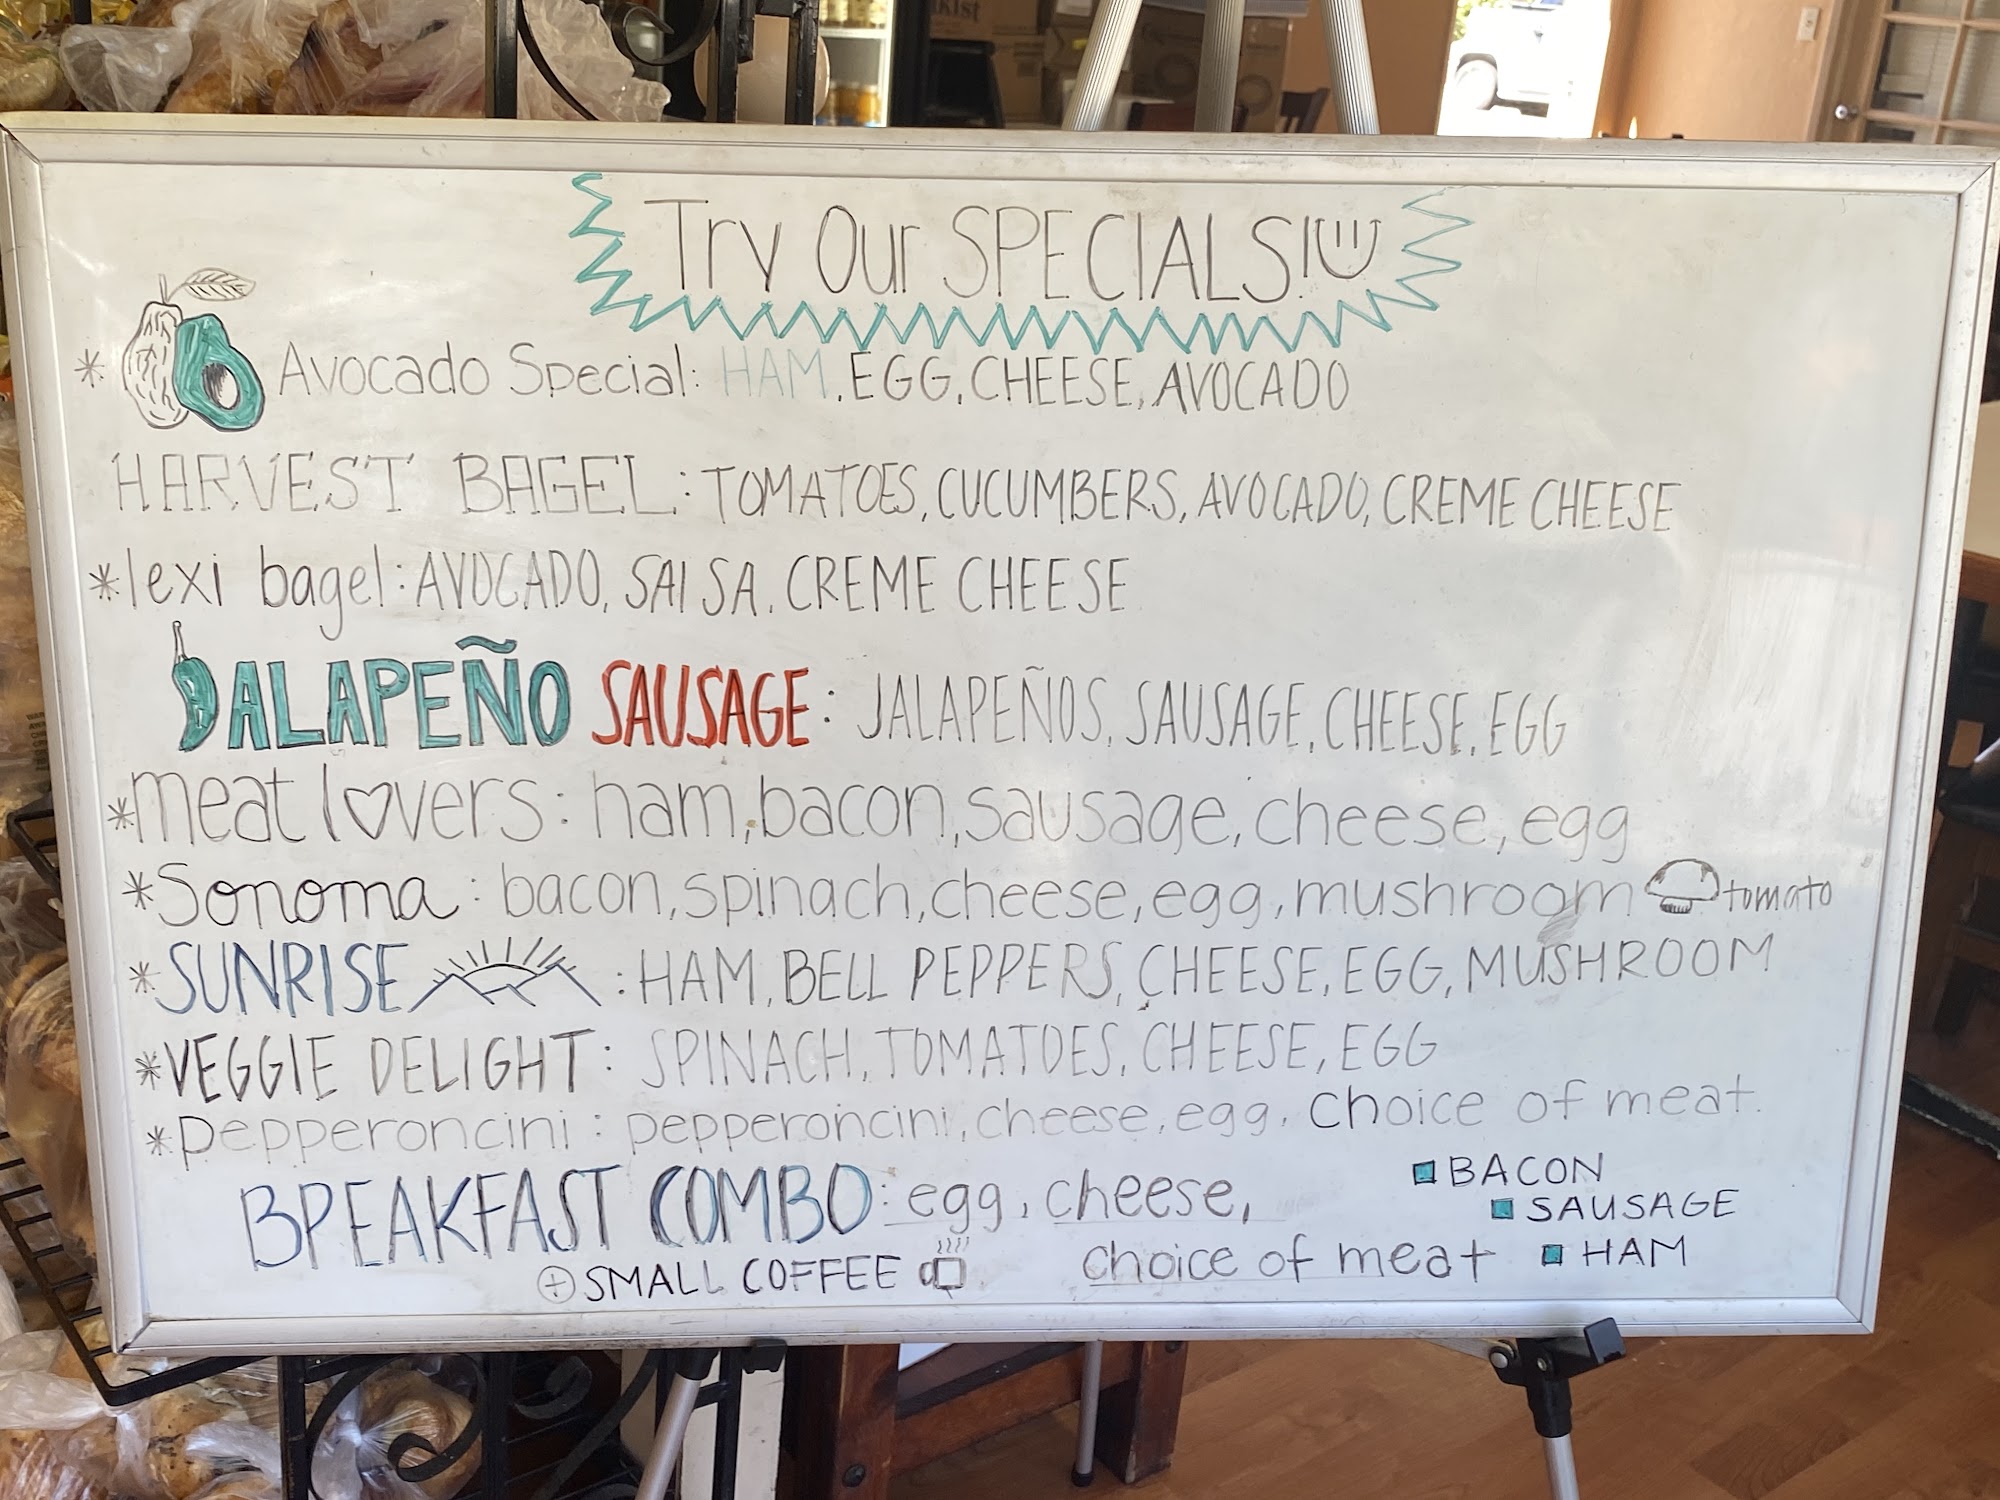 Try Our SPECIALS!
* Avocado Special: HAM, EGG, CHEESE, AVOCADO
HARVEST BAGEL: TOMATOES, CUCUMBERS, AVOCADO, CREME CHEESE
* lexi bagel: AVOCADO, SALSA, CREME CHEESE
JALAPEÑO SAUSAGE: JALAPEÑOS, SAUSAGE, CHEESE, EGG
* meat lovers: ham, bacon, sausage, cheese, egg
* Sonoma: bacon, spinach, cheese, egg, mushroom tomato
* SUNRISE: HAM, BELL PEPPERS, CHEESE, EGG, MUSHROOM
* VEGGIE DELIGHT: SPINACH, TOMATOES, CHEESE, EGG
* pepperoncini: pepperoncini, cheese, egg, choice of meat.
BREAKFAST COMBO: egg, cheese,
choice of meat
BACON
SAUSAGE
HAM
+ SMALL COFFEE